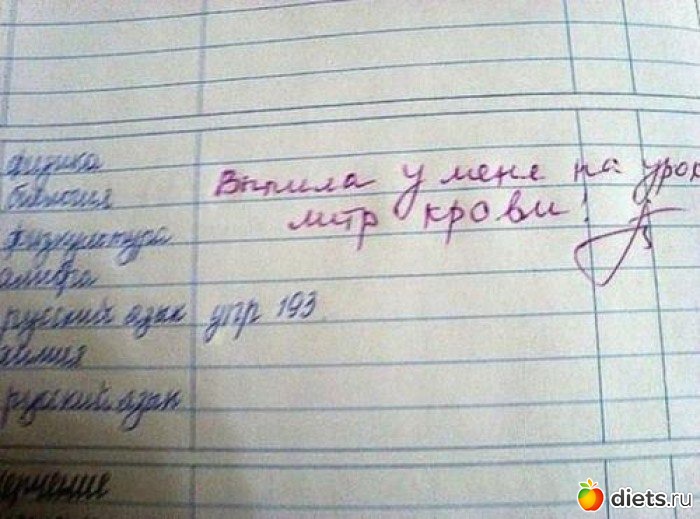 физика
биология
физкультура
алгебра
русский язык упр 193
химия
русский язык
черчение
Выпила у меня на урок
литр крови!
diets.ru